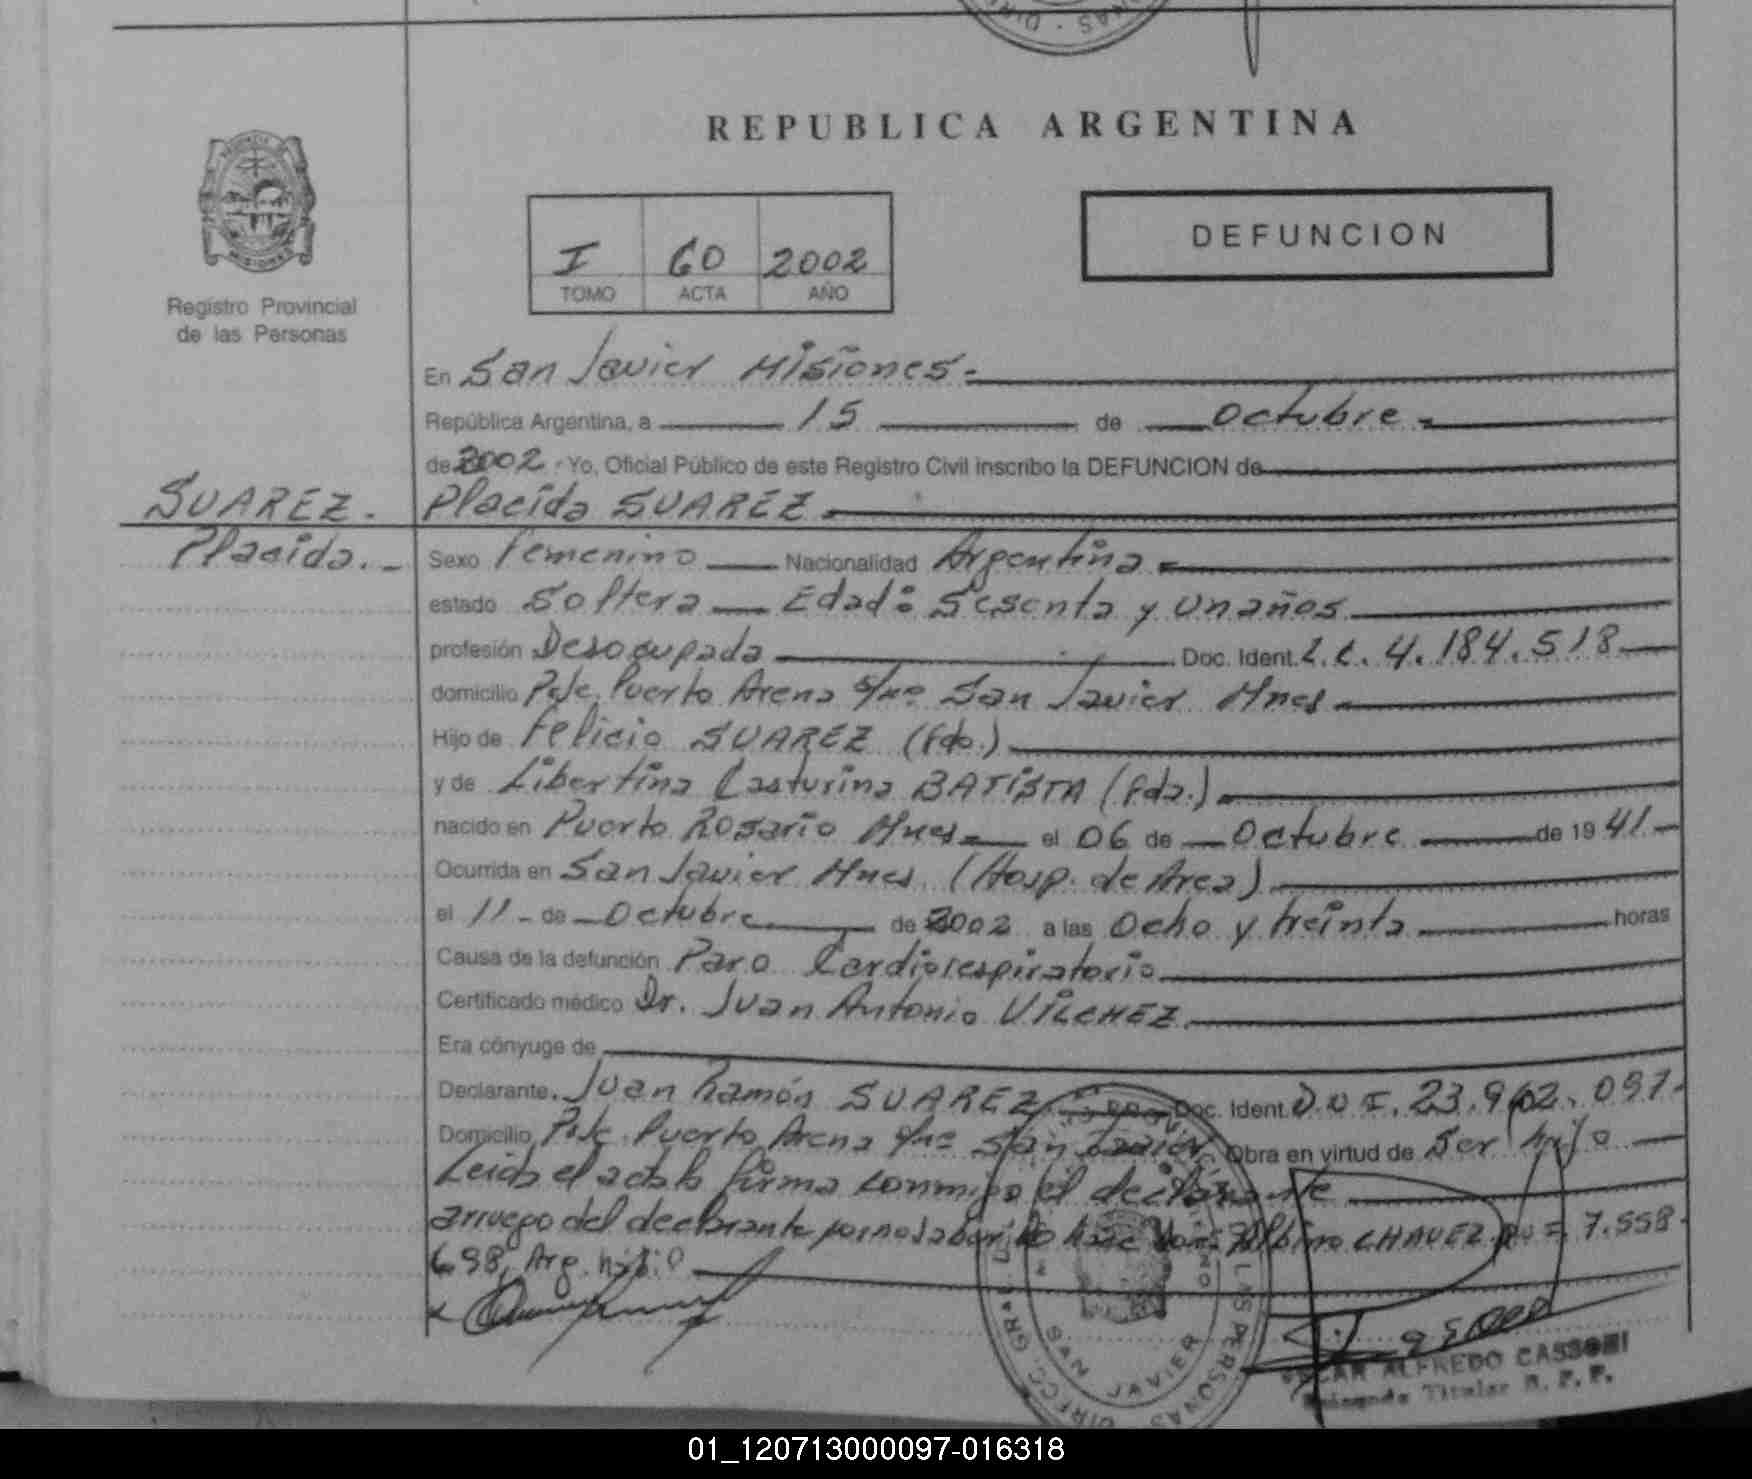 REPUBLICA ARGENTINA
I 60 2002
TOMO ACTA AÑO
DEFUNCION
Registro Provincial
de las Personas
En San Javier Misiones.-
República Argentina, a 15 de Octubre.-
de 2002. Yo, Oficial Público de este Registro Civil inscribo la DEFUNCION de
SUAREZ.
Placida.-
Placida SUAREZ.
Sexo Femenino Nacionalidad Argentina
estado Soltera Edad: Sesenta y Un años
profesión Desocupada Doc. Ident. L.C. 4.184.518
domicilio Pje. Puerto Arena s/nº San Javier Mnes
Hijo de Felicio SUAREZ (fdo.)
y de Libertina Casturina BATISTA (fda.)
nacido en Puerto Rosario Mnes el 06 de Octubre de 1941
Ocurrida en San Javier Mnes. (Hosp. de Area)
el 11 de Octubre de 2002 a las Ocho y treinta horas
Causa de la defunción Paro Cardiorespiratorio
Certificado médico Dr. Juan Antonio VILCHEZ
Era cónyuge de
Declarante Juan Ramón SUAREZ Doc. Ident. D.U I. 23.962.097
Domicilio Pje. Puerto Arena s/nº San Javier Obra en virtud de Ser hijo
Leida el acta la firma conmigo el declarante
arruego del declarante por no saber lo hace Albino CHAVEZ 7.558.
698, Arg.
SAN JAVIER
LAS PERSONAS
ALFREDO CASSONI
Titular R. P. P.
01_120713000097-016318